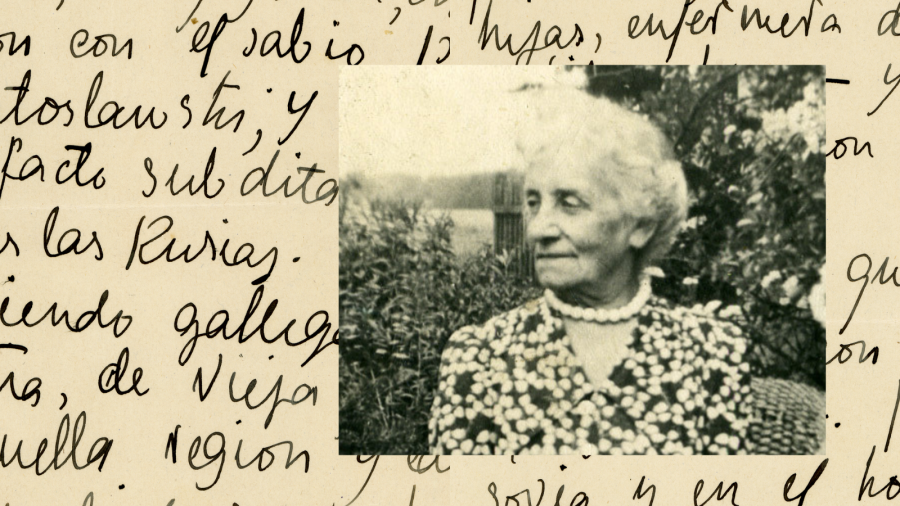 con el sabio hijas, enfermera d
toslawski, y y
facto subdita on
s las Rusias.
iendo galleg qu
ña, de Vieja con
uella region y
sovia y en el ho